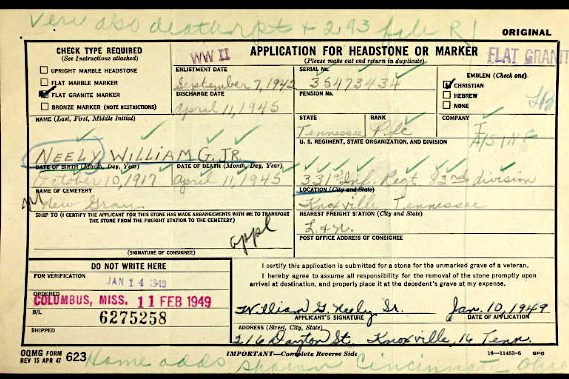 Very also death rpt & 293 file R!
ORIGINAL
CHECK TYPE REQUIRED
(See Instructions attached)
WW II
APPLICATION FOR HEADSTONE OR MARKER
(Please make out and return in duplicate).
FLAT GRANIT
UPRIGHT MARBLE HEADSTONE
FLAT MARBLE MARKER
FLAT GRANITE MARKER
BRONZE MARKER (NOTE RESTRICTIONS)
ENLISTMENT DATE
September 7, 1942
DISCHARGE DATE
April 11, 1945
SERIAL No.
35473434
PENSION No.
EMBLEM (Check one)
CHRISTIAN
HEBREW
NONE
NAME (Last, First, Middle Initial)
NEELY, WILLIAM G. JR.
STATE
Tennessee
RANK
Pfc
COMPANY
U. S. REGIMENT, STATE ORGANIZATION, AND DIVISION
331st Inf. Regt. 83rd division
DATE OF BIRTH (Month, Day, Year)
October 10, 1917
DATE OF DEATH (Month, Day, Year)
April 11, 1945
NAME OF CEMETERY
New Gray
LOCATION (City and State)
Knoxville, Tennessee
SHIP TO (I CERTIFY THE APPLICANT FOR THIS STONE HAS MADE ARRANGEMENTS WITH ME TO TRANSPORT THE STONE FROM THE FREIGHT STATION TO THE CEMETERY)
appl
NEAREST FREIGHT STATION (City and State)
L & N.
POST OFFICE ADDRESS OF CONSIGNEE
(SIGNATURE OF CONSIGNEE)
DO NOT WRITE HERE
FOR VERIFICATION
JAN 14 1949
ORDERED
COLUMBUS, MISS. 11 FEB 1949
B/L
6275258
SHIPPED
I certify this application is submitted for a stone for the unmarked grave of a veteran.
I hereby agree to assume all responsibility for the removal of the stone promptly upon
arrival at destination, and properly place it at the decedent's grave at my expense.
William G. Neely Sr. Jan. 10, 1949
APPLICANT'S SIGNATURE DATE OF APPLICATION
ADDRESS (Street, City, State)
216 Dayton St. Knoxville, 16 Tenn.
OQMG FORM
REV 15 APR 47 623
IMPORTANT—Complete Reverse Side
16—11453-6 GPO
Home adds shown Cincinnati Ohio